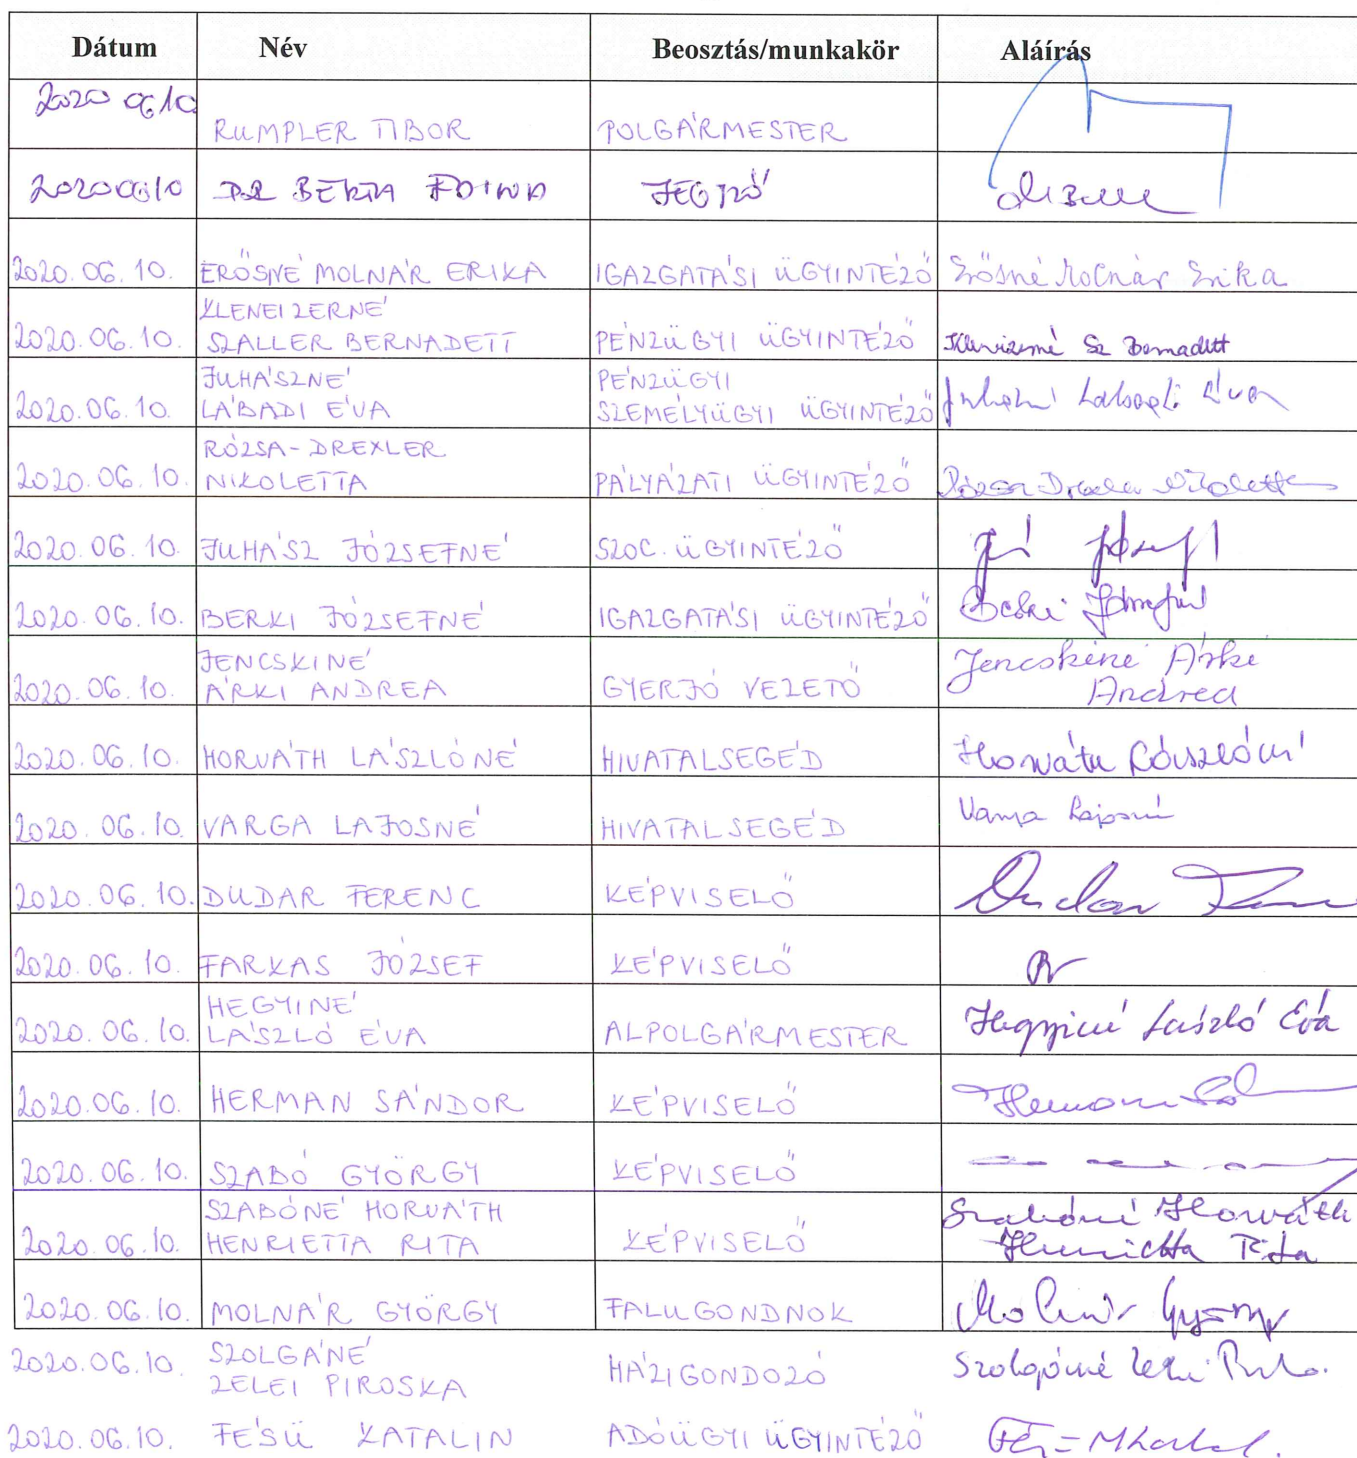 Dátum Név Beosztás/munkakör Aláírás
2020 06 10
RUMPLER TIBOR POLGÁRMESTER
2020 06 10 DR BERTA JEGYZŐ
2020. 06. 10. ERŐSNÉ MOLNÁR ERIKA IGAZGATÁSI ÜGYINTÉZŐ Erősné Molnár Erika
KLENEIZERNÉ
2020. 06. 10. SZALLER BERNADETT PÉNZÜGYI ÜGYINTÉZŐ Sz Bernadett
JUHÁSZNÉ PÉNZÜGYI
2020. 06. 10. LÁBADI ÉVA SZEMÉLYÜGYI ÜGYINTÉZŐ Juhászné Lábadi Éva
RÓZSA-DREXLER
2020. 06. 10. NIKOLETTA PÁLYÁZATI ÜGYINTÉZŐ Rózsa-Drexler Nikoletta
2020. 06. 10. JUHÁSZ JÓZSEFNÉ SZOC. ÜGYINTÉZŐ
2020. 06. 10. BERKI JÓZSEFNÉ IGAZGATÁSI ÜGYINTÉZŐ Berki Józsefné
JENCSKINÉ Jencskiné Árki
2020. 06. 10. ÁRKI ANDREA GYERJÓ VEZETŐ Andrea
2020. 06. 10. HORVÁTH LÁSZLÓNÉ HIVATALSEGÉD Horváth Lászlóné
2020. 06. 10. VARGA LAJOSNÉ HIVATALSEGÉD Varga Lajosné
2020. 06. 10. DUDAR FERENC KÉPVISELŐ Dudar
2020. 06. 10. FARKAS JÓZSEF KÉPVISELŐ
HEGYINÉ
2020. 06. 10. LÁSZLÓ ÉVA ALPOLGÁRMESTER Hegyiné László Éva
2020. 06. 10. HERMAN SÁNDOR KÉPVISELŐ Herman
2020. 06. 10. SZABÓ GYÖRGY KÉPVISELŐ
SZABÓNÉ HORVÁTH Szabóné Horváth
2020. 06. 10. HENRIETTA RITA KÉPVISELŐ Henrietta Rita
2020. 06. 10. MOLNÁR GYÖRGY FALUGONDNOK Molnár György
SZOLGÁNÉ
2020. 06. 10. ZELEI PIROSKA HÁZIGONDOZÓ Szolgáné Zelei
2020. 06. 10. FÉSÜ KATALIN ADÓÜGYI ÜGYINTÉZŐ